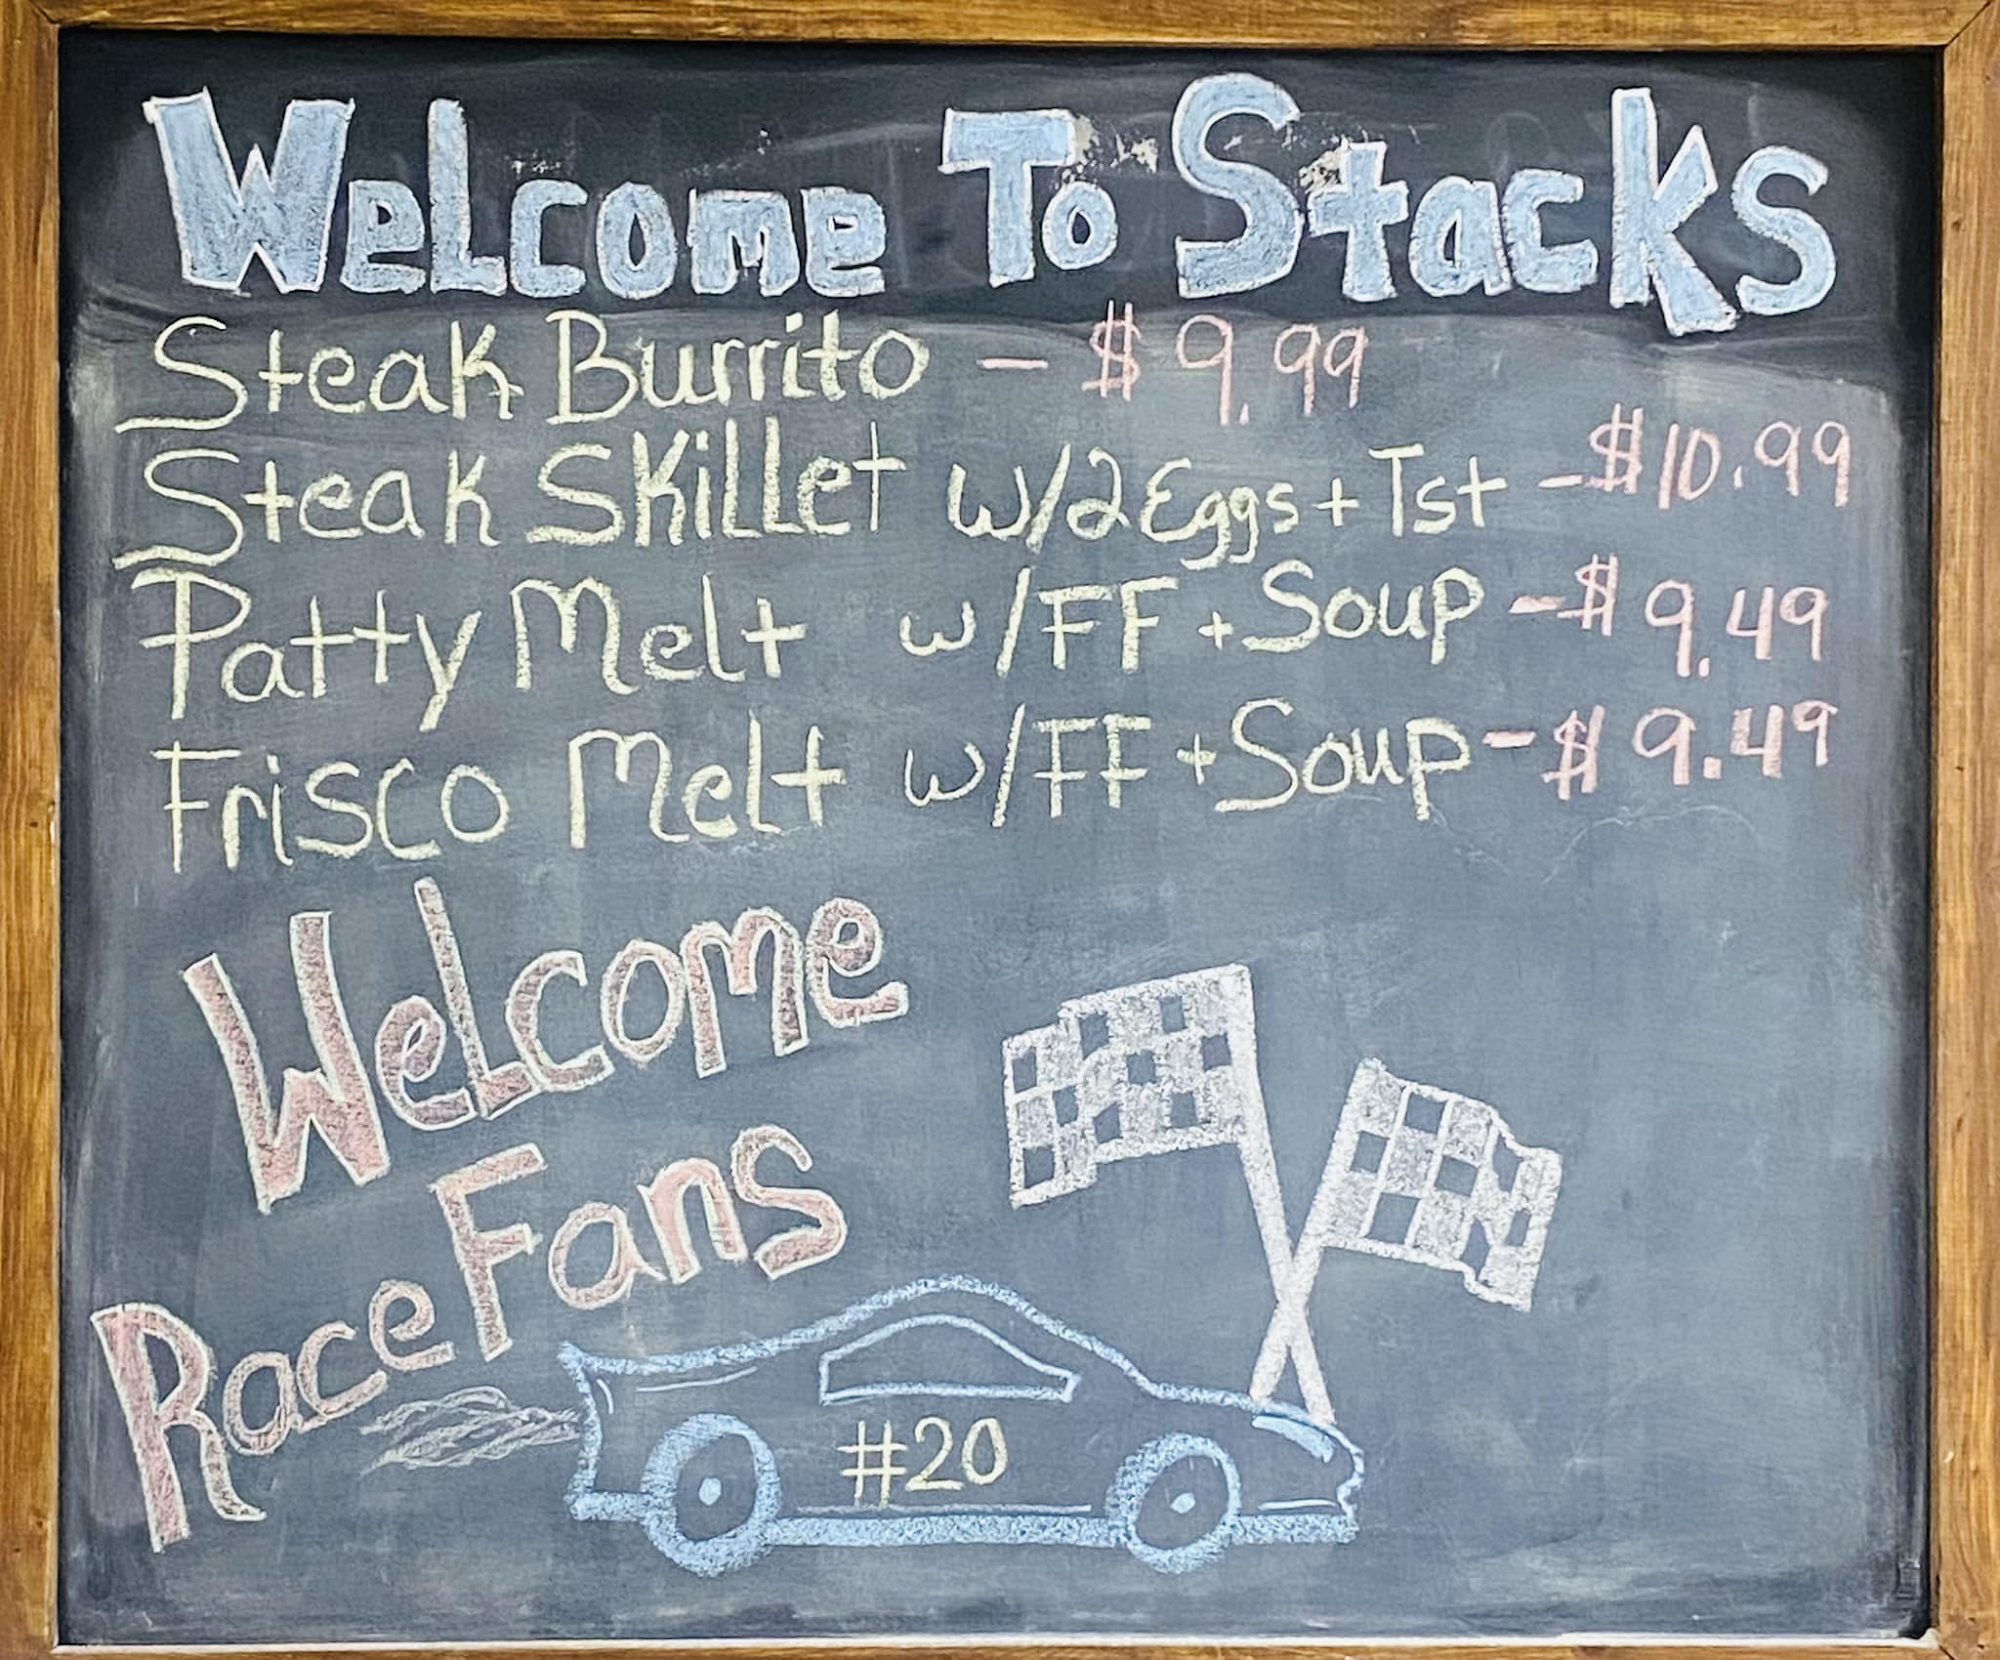 Welcome To Stacks
Steak Burrito - $9.99
Steak Skillet w/2 Eggs + Tst - $10.99
Patty Melt w/FF + Soup - $9.49
Frisco Melt w/FF + Soup - $9.49
Welcome
Race Fans
#20